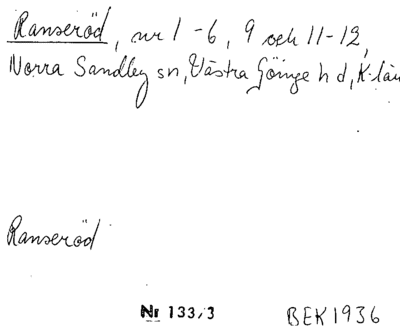 Ranseröd, nr 1-6, 9 och 11-12,
Norra Sandby sn, Västra Göinge hd, K-län
Ranseröd
Nr 133/3 BEK 1936